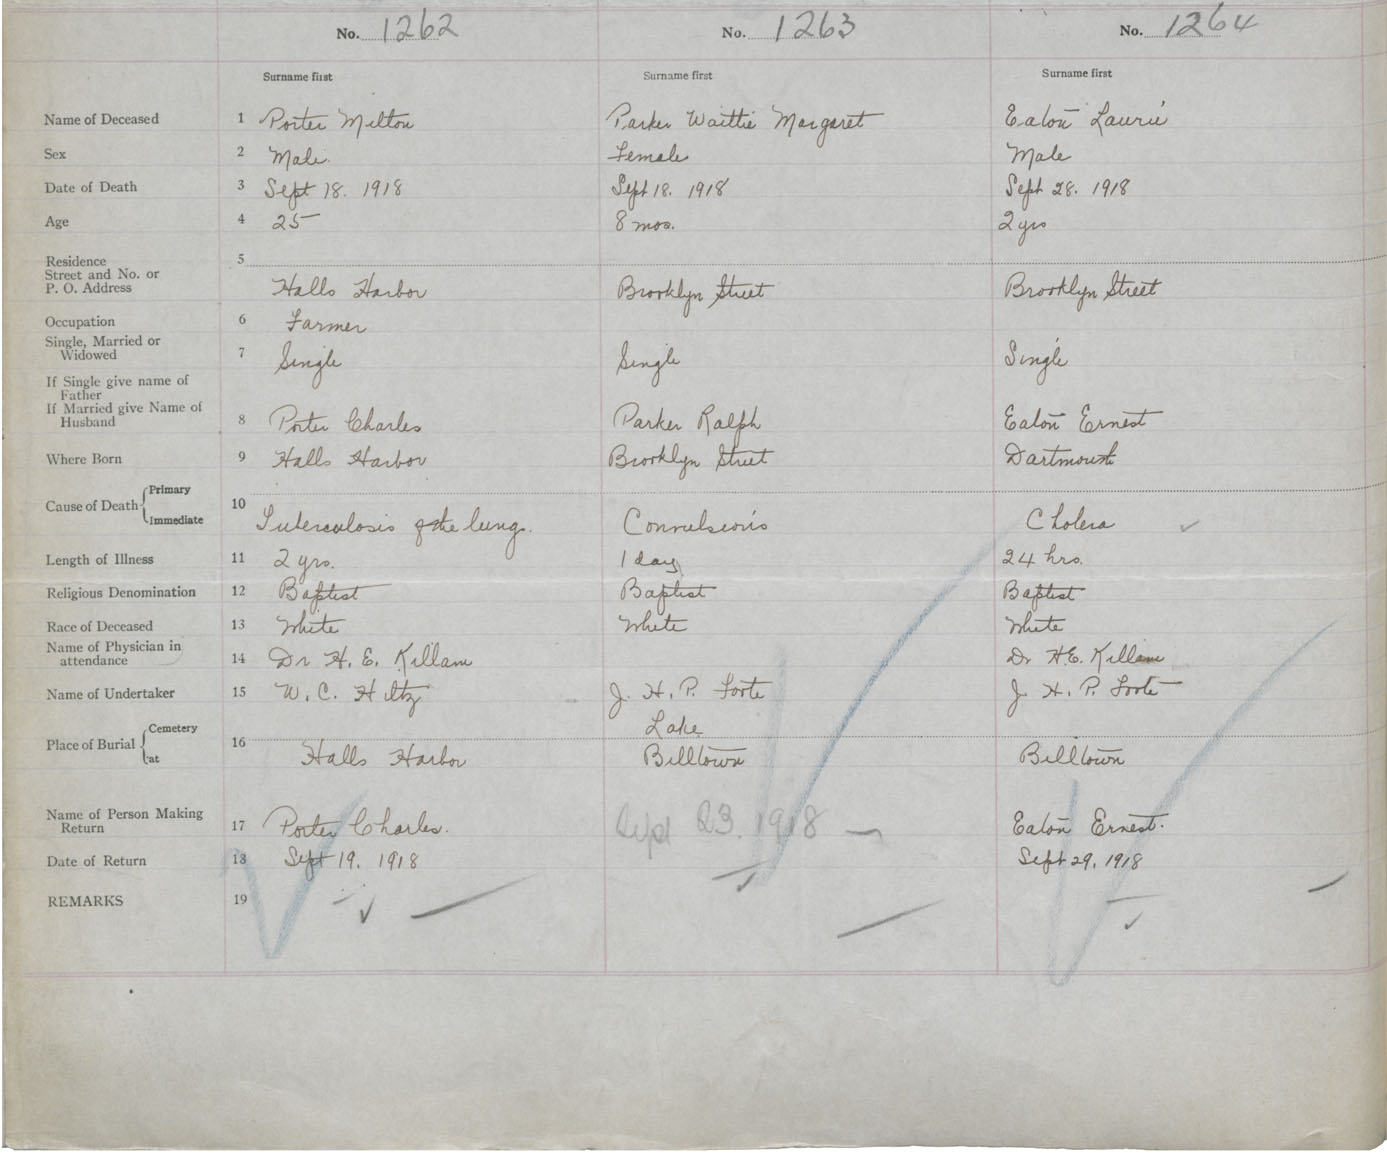 No. 1262 No. 1263 No. 1264
Surname first Surname first Surname first
Name of Deceased 1 Porter Milton Parker Waittie Margaret Eaton Laurie
Sex 2 Male. Female Male
Date of Death 3 Sept 18. 1918 Sept 18. 1918 Sept 28. 1918
Age 4 25 8 mos. 2 yrs
Residence 5
Street and No. or
P. O. Address Halls Harbor Brooklyn Street Brooklyn Street
Occupation 6 Farmer
Single, Married or
Widowed 7 Single Single Single
If Single give name of
Father
If Married give Name of
Husband 8 Porter Charles Parker Ralph Eaton Ernest
Where Born 9 Halls Harbor Brooklyn Street Dartmouth
Primary
Cause of Death 10
Immediate Tuberculosis of the lung. Convulsions Cholera
Length of Illness 11 2 yrs. 1 day 24 hrs.
Religious Denomination 12 Baptist Baptist Baptist
Race of Deceased 13 White White White
Name of Physician in
attendance 14 Dr H. E. Killam Dr H.E. Killam
Name of Undertaker 15 W. C. Hiltz J. H. P. Foote J. H. P. Foote
Cemetery Lake
Place of Burial 16
at Halls Harbor Billtown Billtown
Name of Person Making
Return 17 Porter Charles. Sept 23. 1918 Eaton Ernest.
Date of Return 18 Sept 19. 1918 Sept 29. 1918
REMARKS 19